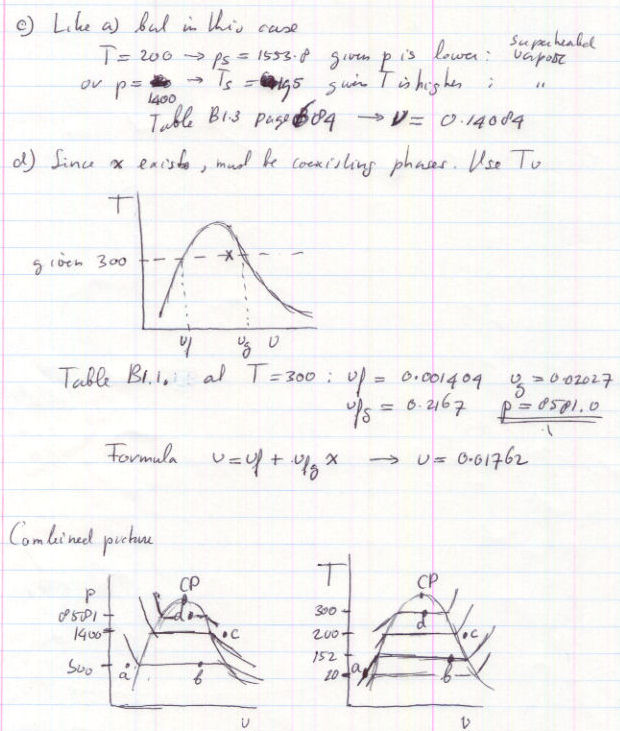 c) Like a) but in this case
T = 200 → ps = 1553.8 given p is lower : superheated vapor
or p = 1400 → Ts = 195 given T is higher : "
Table B1.3 page 684 → v = 0.14084
d) Since x exists, must be coexisting phases. Use Tv
T
given 300
x
vf vg v
Table B1.1. at T = 300 : vf = 0.001404 vg = 0.02027
vfg = 0.2167 p = 8581.0
Formula v = vf + vfg x → v = 0.01762
Combined picture
P CP
8581 d
1400 c
500 a b
v
T CP
300 d
200 c
152
20 a b
v